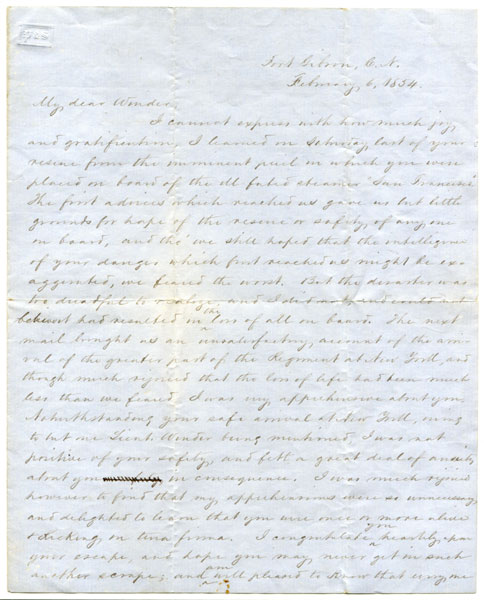 Fort Gibson, C. N.
February, 6, 1854.
My, dear Winder,
I cannot express with how much joy,
and gratification, I learned on Saturday, last of your
rescue from the imminent peril in which you were
placed on board of the ill fated steamer "San Francisco"
The first advices which reached us gave us but little
grounds for hope of the rescue or safety, of any, one
on board, and tho' we still hoped that the intelligence
of your danger which first reached us might be ex-
aggerated, we feared the worst. But the disaster was
too dreadful to realize, and I did not, and could not
believe it had resulted in the loss of all on board. The next
mail brought us an unsatisfactory, account of the arri-
val of the greater part of the Regiment at New York, and
though much rejoiced that the loss of life had been much
less than we feared, I was very, apprehensive about you,
Notwithstanding your safe arrival at New York, owing
to but one Lieut. Winder being mentioned, I was not
positive of your safety, and felt a great deal of anxiety
about you in consequence. I was much rejoiced
however to find that my, apprehensions were so unnecessary,
and delighted to learn that you were once more alive
& kicking, on terra firma. I congratulate you heartily, upon
your escape, and hope you may, never get in such
another scrape; and am well pleased to know that every, one